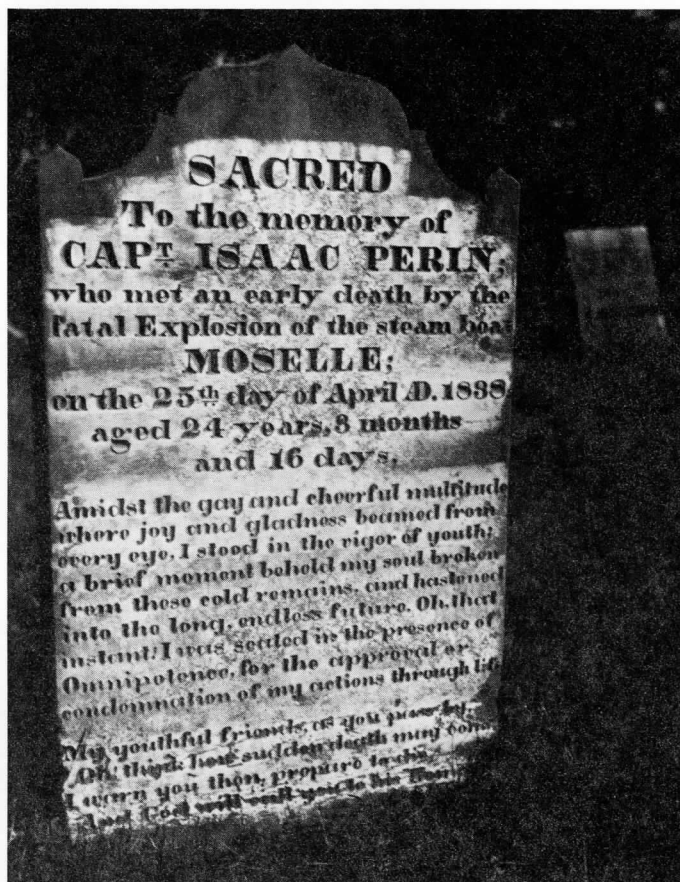 SACRED
To the memory of
CAPT. ISAAC PERIN,
who met an early death by the
fatal Explosion of the steam boat
MOSELLE;
on the 25th day of April AD. 1838
aged 24 years, 8 months
and 16 days.
Amidst the gay and cheerful multitude
where joy and gladness beamed from
every eye, I stood in the vigor of youth;
a brief moment behold my soul broken
from these cold remains, and hastened
into the long, endless future. Oh, that
instant! I was seated in the presence of
Omnipotence, for the approval or
condemnation of my actions through life
My youthful friends, as you pass by,
Oh! think how sudden death may come
I warn you then, prepare to die
And God will call you to his